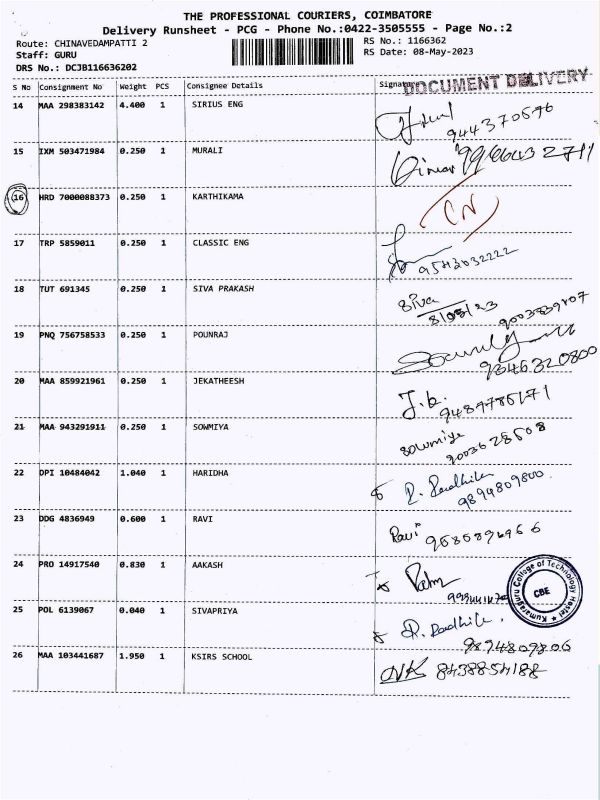 THE PROFESSIONAL COURIERS, COIMBATORE
Delivery Runsheet - PCG - Phone No.:0422-3505555 - Page No.:2
Route: CHINAVEDAMPATTI 2
RS No.: 1166362
Staff: GURU
RS Date: 08-May-2023
DRS No.: DCJB116636202
S No Consignment No Weight PCS Consignee Details Signature
DOCUMENT DELIVERY
14 MAA 298383142 4.400 1 SIRIUS ENG
944370596
15 IXM 503471984 0.250 1 MURALI
16 HRD 7000088373 0.250 1 KARTHIKAMA
CN
17 TRP 5859011 0.250 1 CLASSIC ENG
9543032222
18 TUT 691345 0.250 1 SIVA PRAKASH
Siva
8/05/23
19 PNQ 756758533 0.250 1 POUNRAJ
9346320800
20 MAA 859921961 0.250 1 JEKATHEESH
J.b.
21 MAA 943291911 0.250 1 SOWMIYA
Sowmiya
9003628508
22 DPI 10484042 1.040 1 HARIDHA
R. Radhika
9894809800
23 DDG 4836949 0.600 1 RAVI
Ravi
24 PRO 14917540 0.830 1 AAKASH
Kumaraguru College of Technology Hostel
CBE
25 POL 6139067 0.040 1 SIVAPRIYA
R. Radhika
9894809806
26 MAA 103441687 1.950 1 KSIRS SCHOOL
NK 8438854188